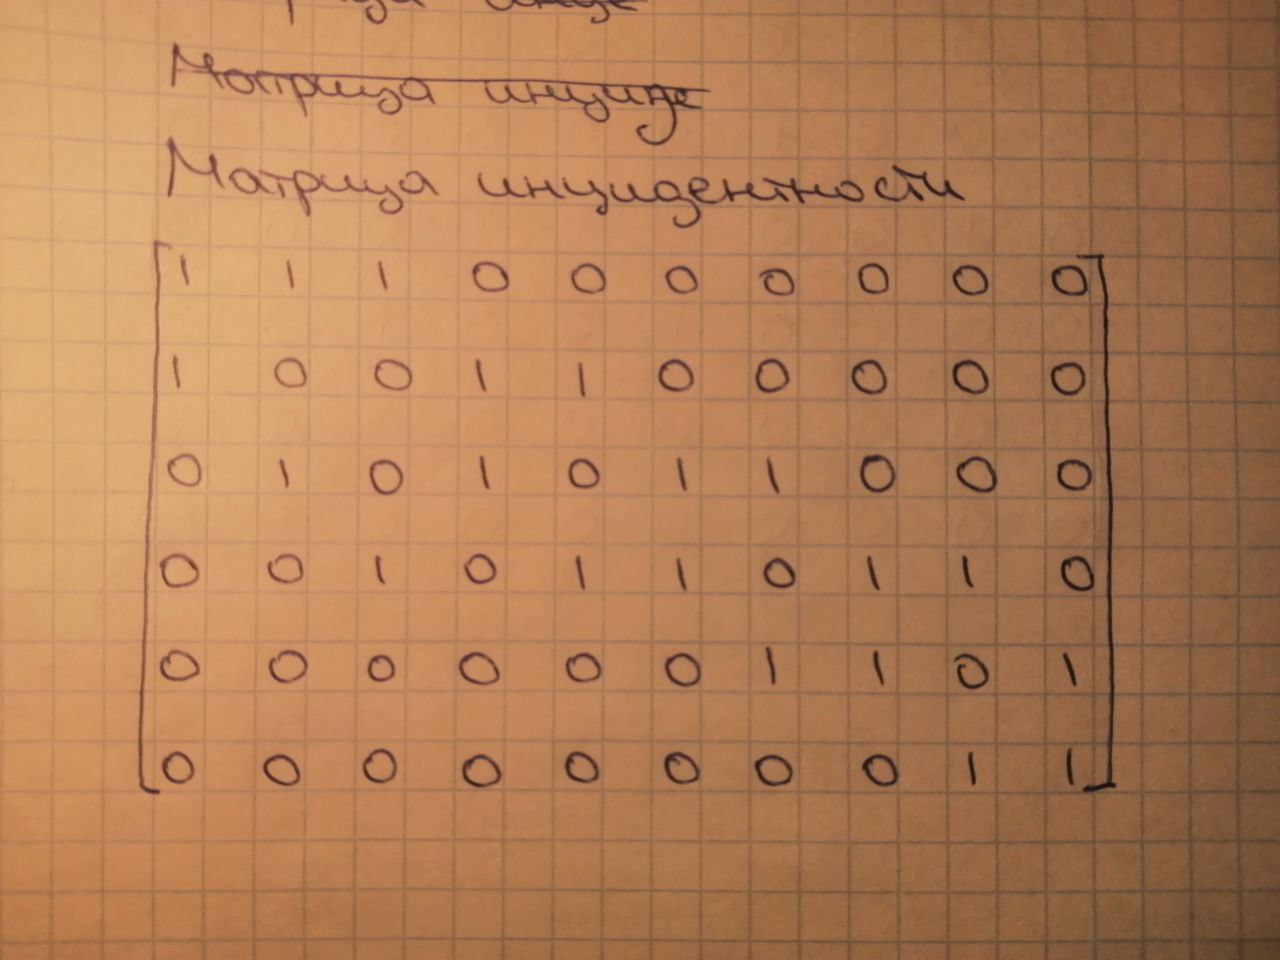 Матрица инциде
Матрица инцидентности
1 1 1 0 0 0 0 0 0 0
1 0 0 1 1 0 0 0 0 0
0 1 0 1 0 1 1 0 0 0
0 0 1 0 1 1 0 1 1 0
0 0 0 0 0 0 1 1 0 1
0 0 0 0 0 0 0 0 1 1